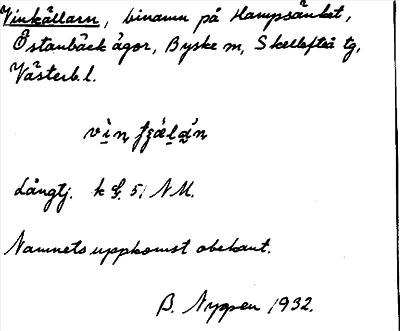 Vinkällarn, binamn på Hampsänket,
Östanbäck ägor, Byske sn, Skellefteå tg,
Västerb. l.
Långtj. k
Namnets uppkomst obekant.
B. Nygren 1932.